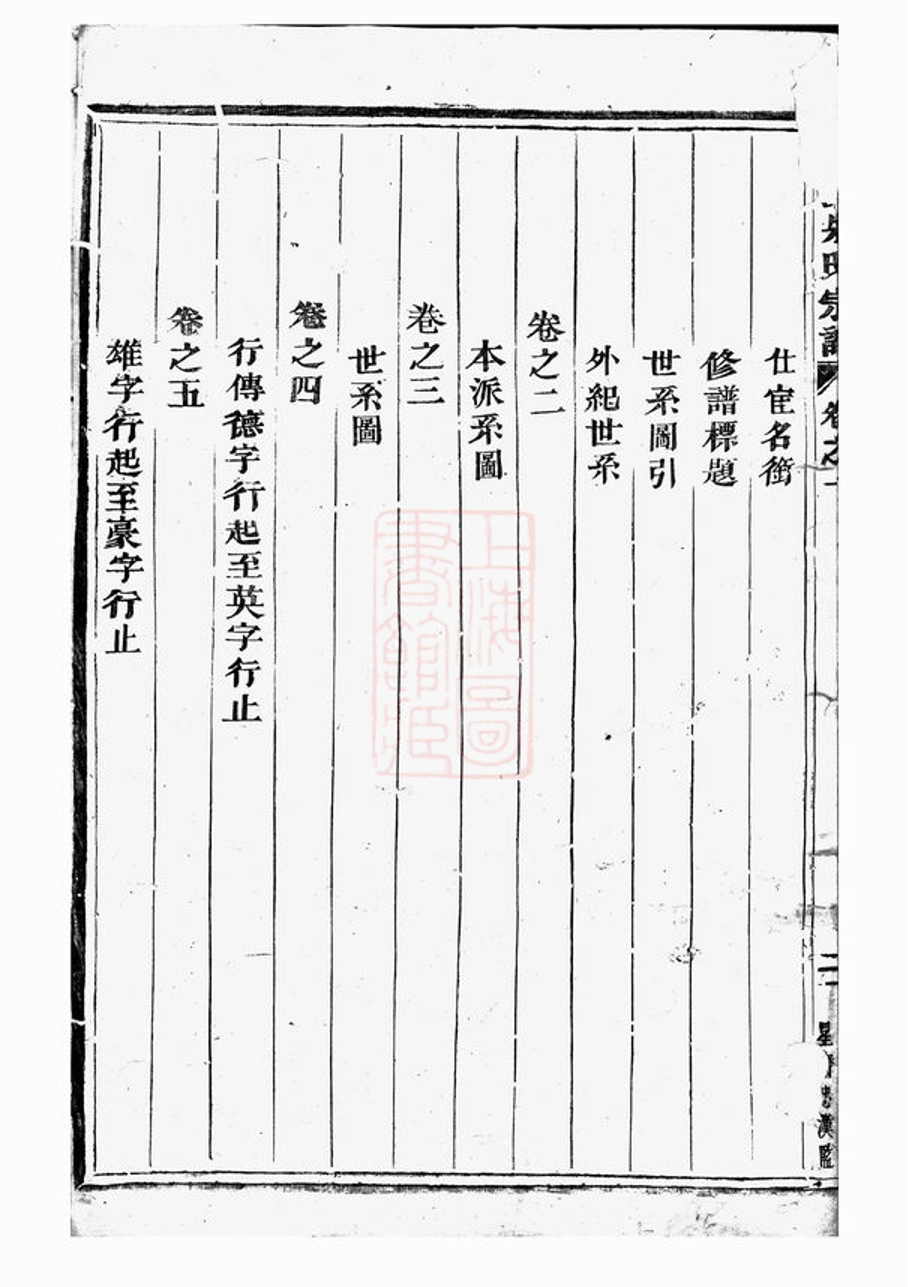 氏宗譜 卷之一 二
仕宦名銜
修譜標題
世系圖引
外紀世系
卷之二
本派系圖
卷之三
世系圖
卷之四
行傳德字行起至英字行止
卷之五
雄字行起至豪字行止
上海圖
書館藏